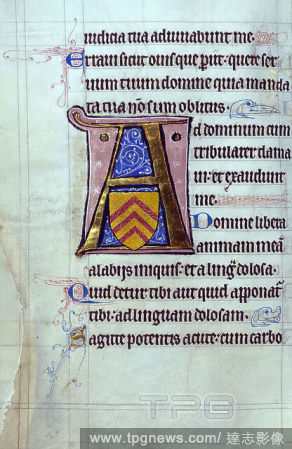 iudicia tua adiuuabunt me.
Erraui sicut ouis que perit: quere ser
uum tuum domine quia manda
ta tua nō sum oblitus.
Ad dominum cum
tribularer clama
ui: et exaudiuit
me.
Domine libera
animam meā
a labijs iniquis: et a lingᷓ dolosa.
Quid detur tibi aut quid apponat᷑
tibi: ad linguam dolosam.
Sagitte potentis acute: cum carbo
TPG
www.tpgnews.com / 達志影像